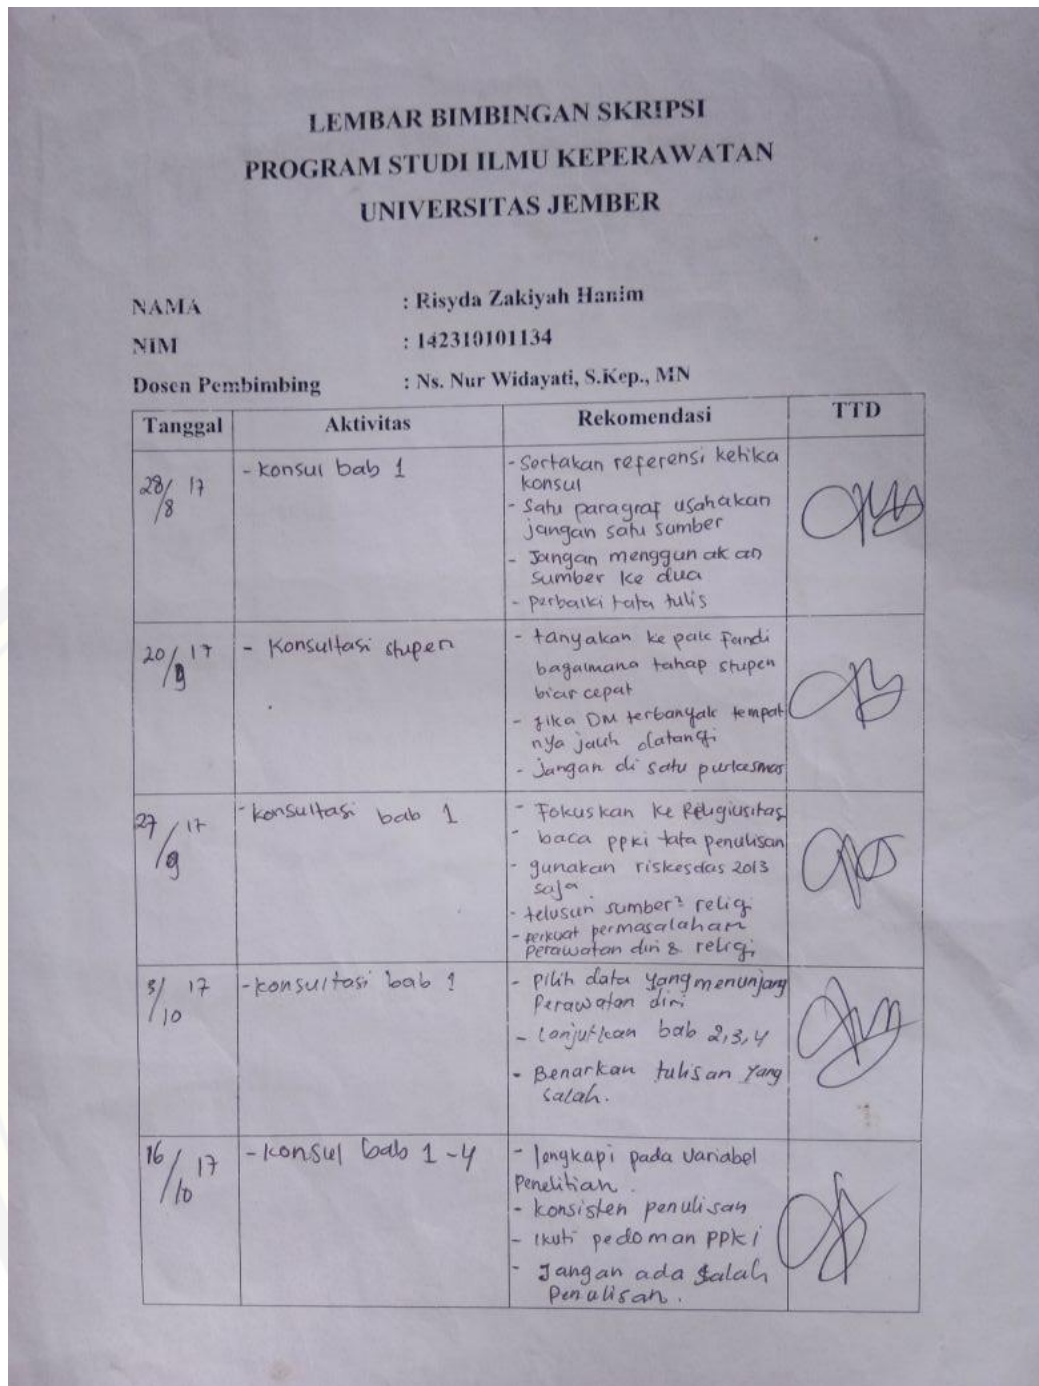 LEMBAR BIMBINGAN SKRIPSI
PROGRAM STUDI ILMU KEPERAWATAN
UNIVERSITAS JEMBER
NAMA : Risyda Zakiyah Hanim
NIM : 142310101134
Dosen Pembimbing : Ns. Nur Widayati, S.Kep., MN
Tanggal Aktivitas Rekomendasi TTD
28/8 17
- konsul bab 1
- Sertakan referensi ketika
konsul
- Satu paragraf usahakan
jangan satu sumber
- Jangan menggunakan
sumber ke dua
- perbaiki tata tulis
20/9 17
- Konsultasi stupen
- tanyakan ke pak Fandi
bagaimana tahap stupen
biar cepat
- jika DM terbanyak tempat
nya jauh datangi
- jangan di satu puskesmas
27/9 17
- konsultasi bab 1
- Fokuskan ke Religiusitas
- baca ppki tata penulisan
- gunakan riskesdas 2013
saja
- telusuri sumber² religi
- perkuat permasalahan
perawatan diri & religi
3/10 17
- konsultasi bab 1
- Pilih data yang menunjang
Perawatan diri
- Lanjutkan bab 2,3,4
- Benarkan tulisan yang
salah.
16/10 17
- konsul bab 1-4
- lengkapi pada variabel
penelitian.
- konsisten penulisan
- ikuti pedoman PPKI
- Jangan ada salah
Penulisan.